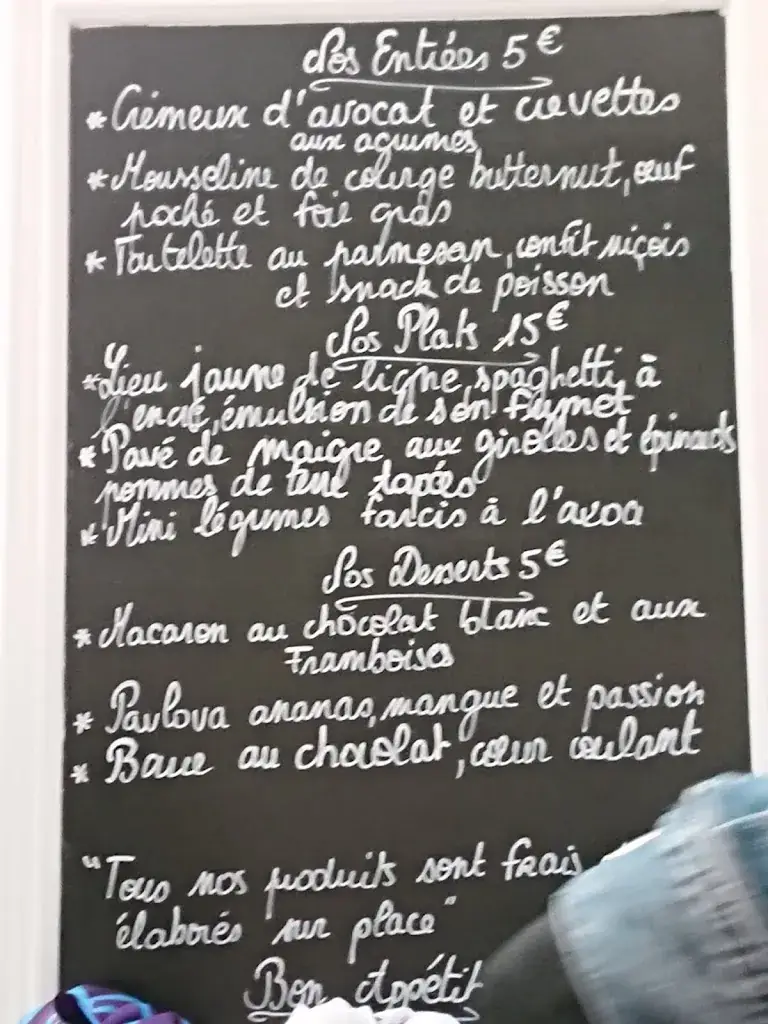 Nos Entrées 5€
* Crémeux d'avocat et crevettes
aux agumes
* Mousseline de courge butternut, œuf
poché et foie gras
* Tartelette au parmesan, confit niçois
et snack de poisson
Nos Plats 15€
* Lieu jaune de ligne, spaghetti à
l'encre, émulsion de son fumet
* Pavé de maigre aux girolles et épinards
pommes de terre tapées
* Mini légumes farcis à l'axoa
Nos Desserts 5€
* Macaron au chocolat blanc et aux
Framboises
* Pavlova ananas, mangue et passion
* au chocolat, cœur coulant
"Tous nos produits sont frais
élaborés sur place"
Bon Appétit